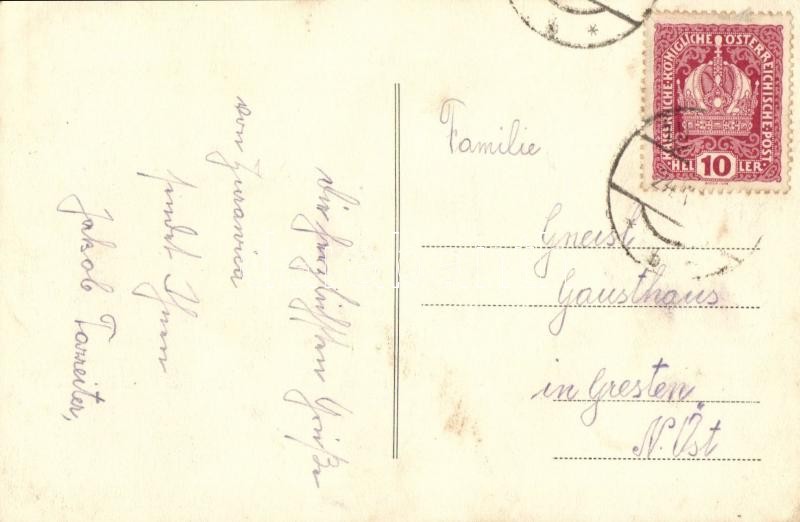 Die herzlichsten Grüße
von Zuravica
sendet Ihnen
Jakob Tarreiter,
Familie
Gneist
Gausthaus
in Gresten
N. Öst
KAISERLICHE KÖNIGLICHE ÖSTERREICHISCHE POST
10
HELLER